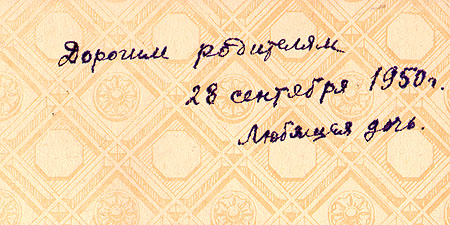 Дорогим родителям
28 сентября 1950г.
Любящая дочь.